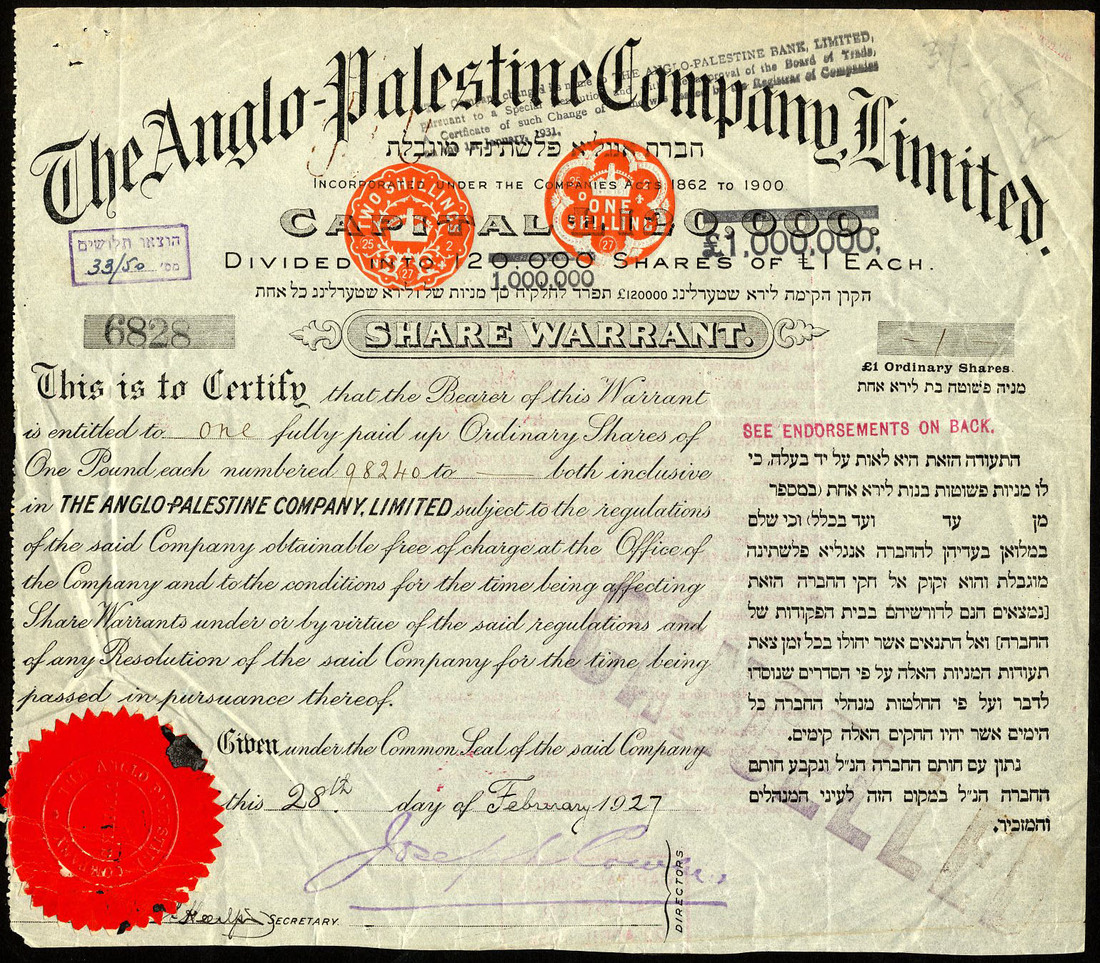 The Anglo-Palestine Company, Limited.
THE ANGLO-PALESTINE BANK, LIMITED,
pursuant to a Special Resolution and with the approval of the Board of Trade,
Certificate of such Change of Name was issued by the Registrar of Companies
January, 1931.
חברת אנגלא פלשתינה מוגבלת
INCORPORATED UNDER THE COMPANIES ACTS 1862 TO 1900
CAPITAL £120,000.
£1,000,000.
DIVIDED INTO 120,000 SHARES OF £1 EACH.
1,000,000
TWO SHILLINGS
25 2
27
ONE SHILLING
27
הוצאו תלושים
מס' 33/50
הקרן הקימת לירא שטערלינג £120000 תפרד לחלקיה מן מניות של לירא שטערלינג כל אחת
6828
SHARE WARRANT.
-1-
£1 Ordinary Shares.
מניה פשוטה בת לירא אחת
This is to Certify that the Bearer of this Warrant
is entitled to one fully paid up Ordinary Shares of
One Pound each numbered 98240 to — both inclusive
in THE ANGLO-PALESTINE COMPANY, LIMITED subject to the regulations
of the said Company obtainable free of charge at the Office of
the Company and to the conditions for the time being affecting
Share Warrants under or by virtue of the said regulations and
of any Resolution of the said Company for the time being
passed in pursuance thereof.
Given under the Common Seal of the said Company
this 28th day of February 1927
SEE ENDORSEMENTS ON BACK.
התעודה הזאת היא לאות על יד בעלה, כי
לו מניות פשוטות בנות לירא אחת (במספר
מן עד ועד בכלל) וכי שלם
במלואן בעדיהן להחברה אנגליא פלשתינה
מוגבלת והוא זקוק אל חקי החברה הזאת
[נמצאים חנם לדורשיהם בבית הפקודות של
החברה] ואל התנאים אשר יחולו בכל זמן צאת
תעודות המניות האלה על פי הסדרים שנוסדו
לדבר ועל פי החלטות מנהלי החברה כל
הימים אשר יהיו החקים האלה קימים.
נתון עם חותם החברה הנ"ל ונקבע חותם
החברה הנ"ל במקום הזה לעיני המנהלים
והמזכיר.
CANCELLED
Joseph Cowen.
DIRECTORS
SECRETARY.